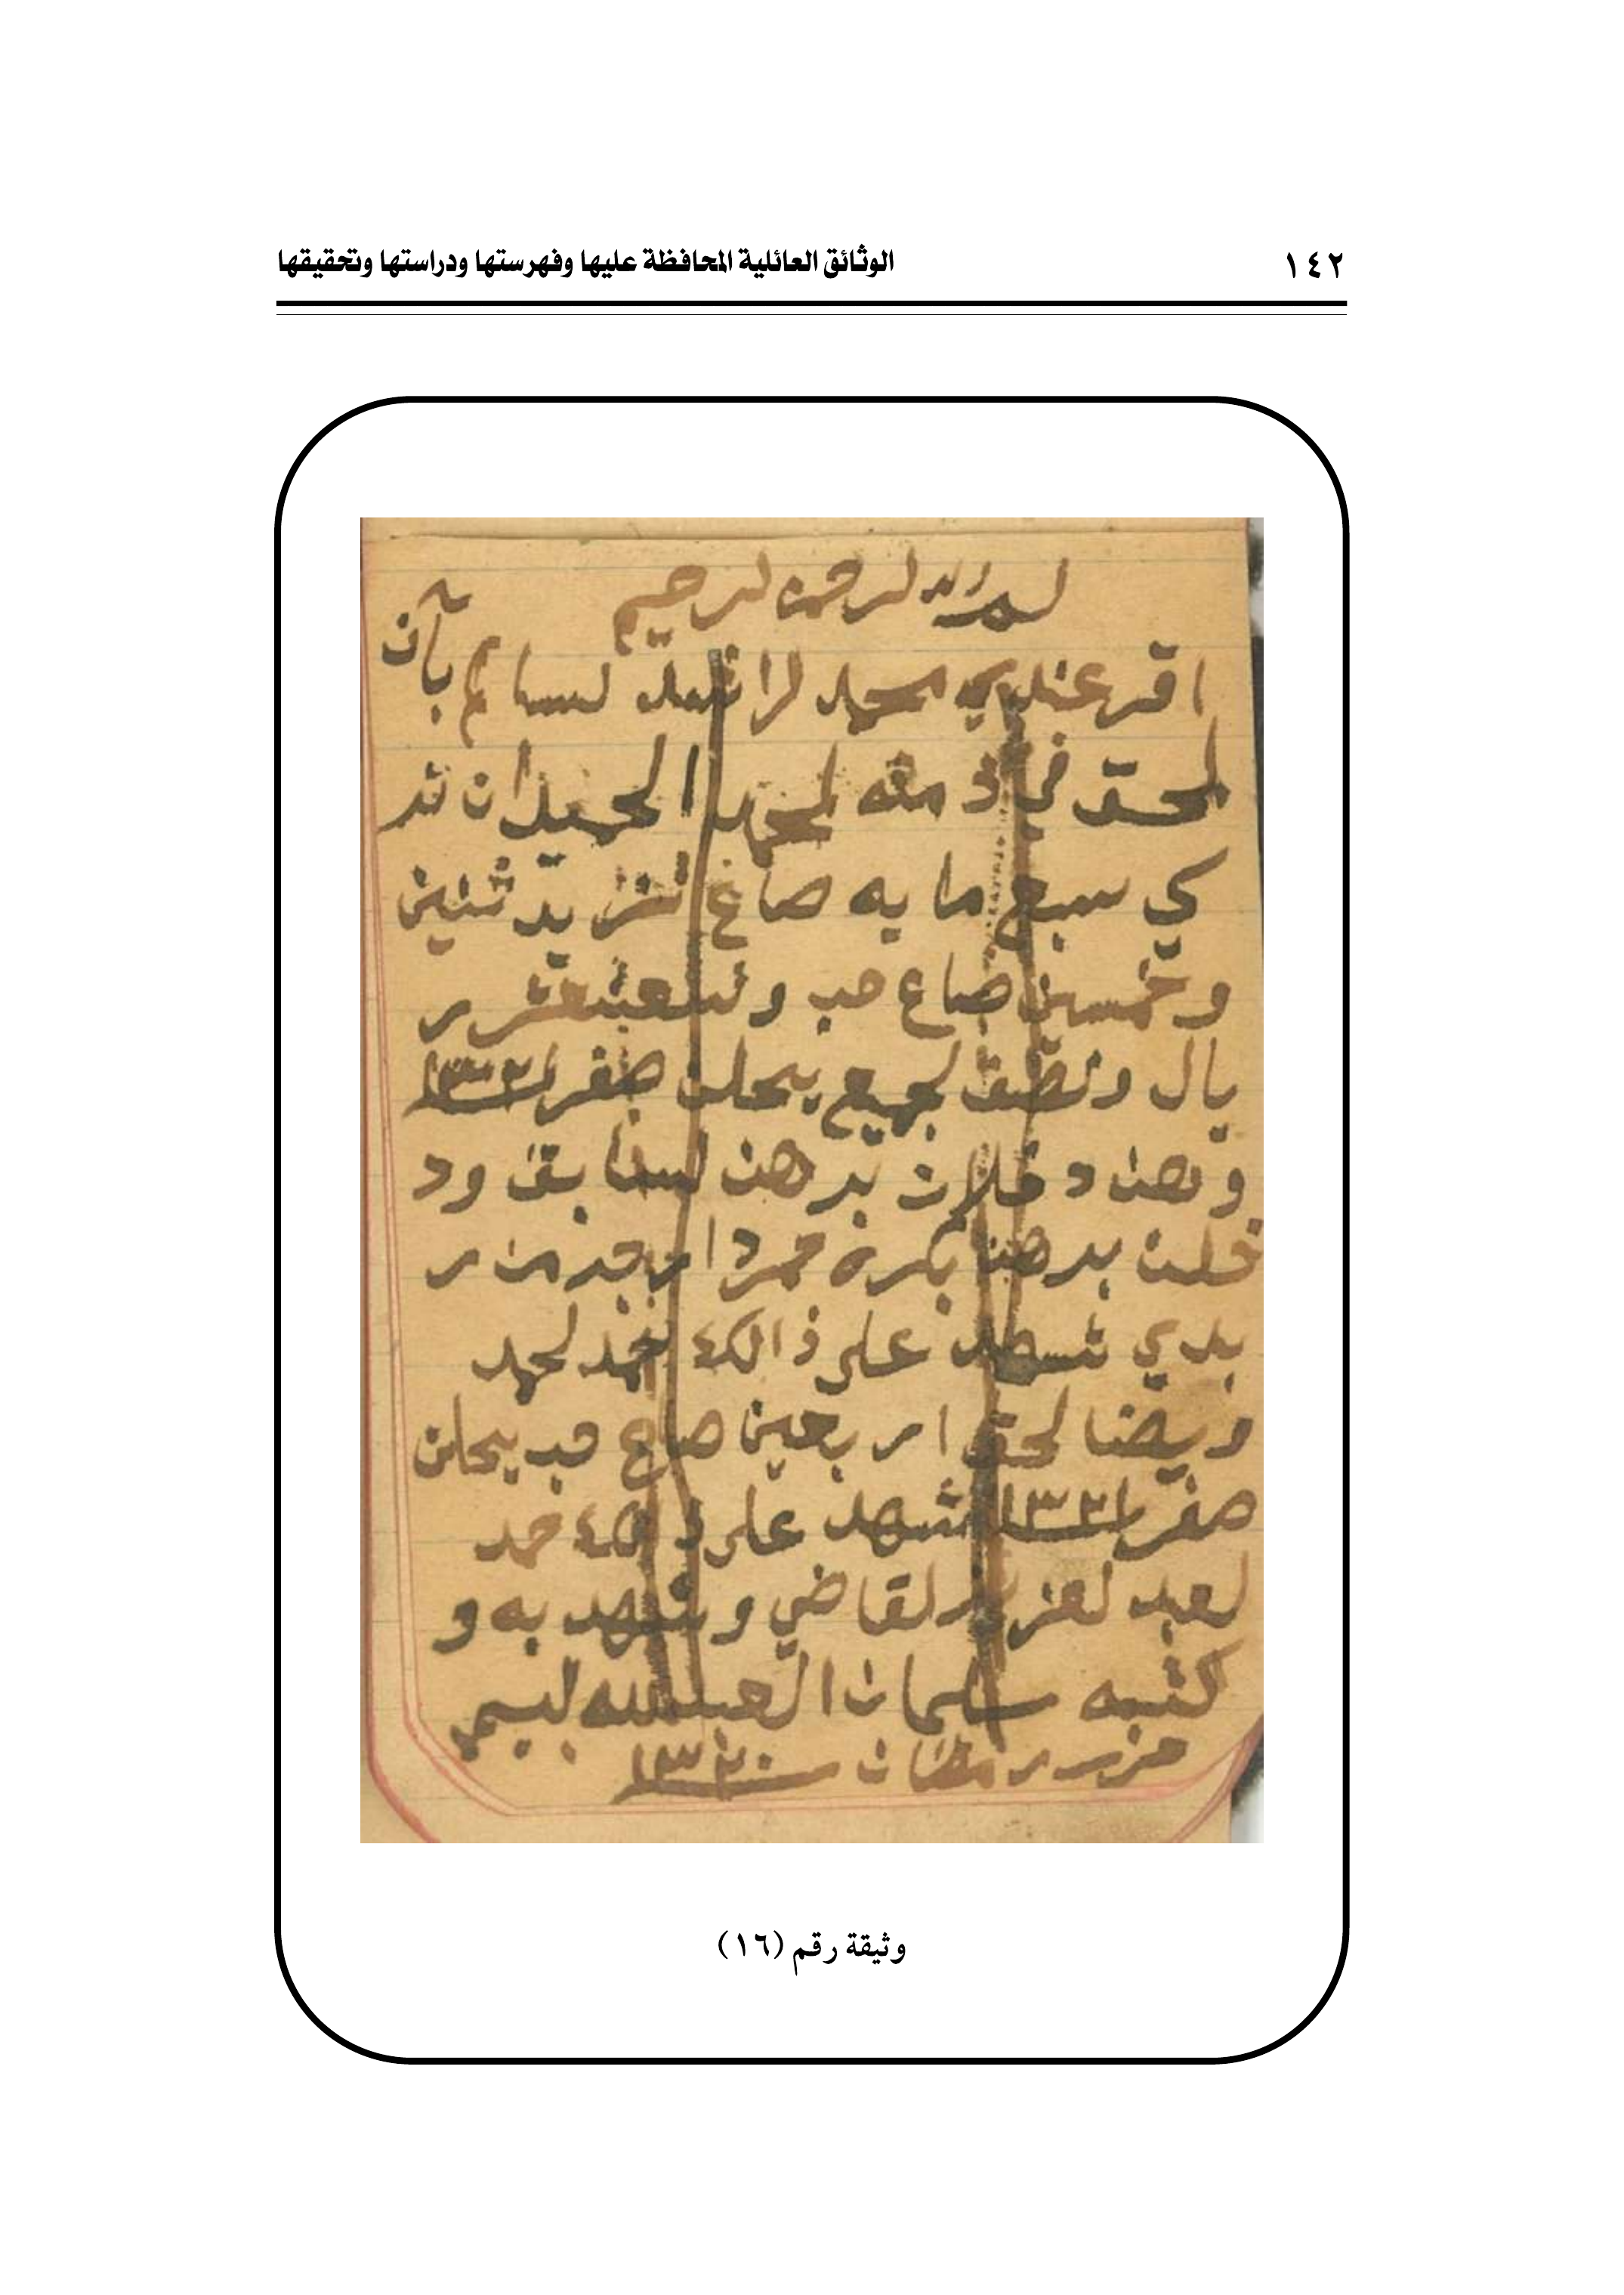 ١٤٢
الوثائق العائلية المحافظة عليها وفهرستها ودراستها وتحقيقها
لرحمن لرحيم
اقر عندي محمد لراشد لسالم بآن
لحق في ذمته لمحمد الحميدان تر
كي سبع مايه صاع تزيد ثنين
وخمسين صاع حب
يال ونصف لجميع يحلن صفر ١٣٢١
وهن د خلات برهن لسابق ود
خلت برهن بكرة حمرا
بدي شهد على ذالك حمد لحمد
ويضا لحق اربعين صاع حب يحلن
صفر ١٣٢١ شهد على ذالك حمد
لعبد لعزيز لقاضي وشهد به و
كتبه سليمان العبدلله لبسيم
رمضان ١٣٢٠
وثيقة رقم (١٦)